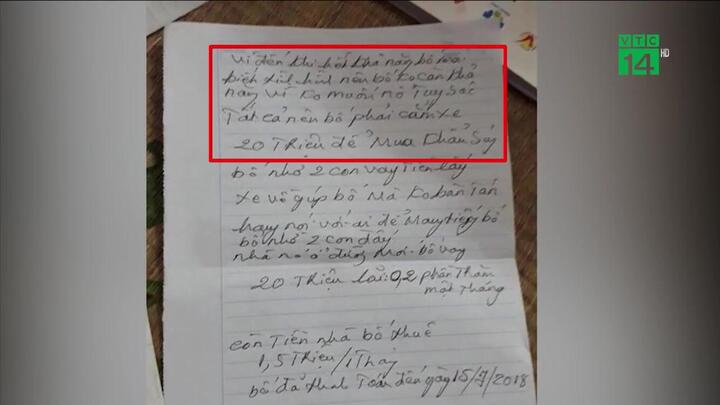 VTC
14 HD
Vì đến khi hết khả năng bố
biết xin hỏi nên bố Ko còn Khả
năng Vì Ko muốn nó
Tất cả nên bố phải cầm xe
20 Triệu để Mua Khẩu Súng
bố nhờ 2 con vay Tiền lấy
xe về gúp bố Mà Ko bàn Tán
hay nói với ai để Mang tiếng bố
bố nhờ 2 con đấy
nhà nó ở bố vay
20 Triệu lãi: 0,2 phần Trăm
một Tháng
còn Tiền nhà bố thuê
1,5 Triệu / 1 Tháng
bố đã thanh Toán đến gày 15/7/2018